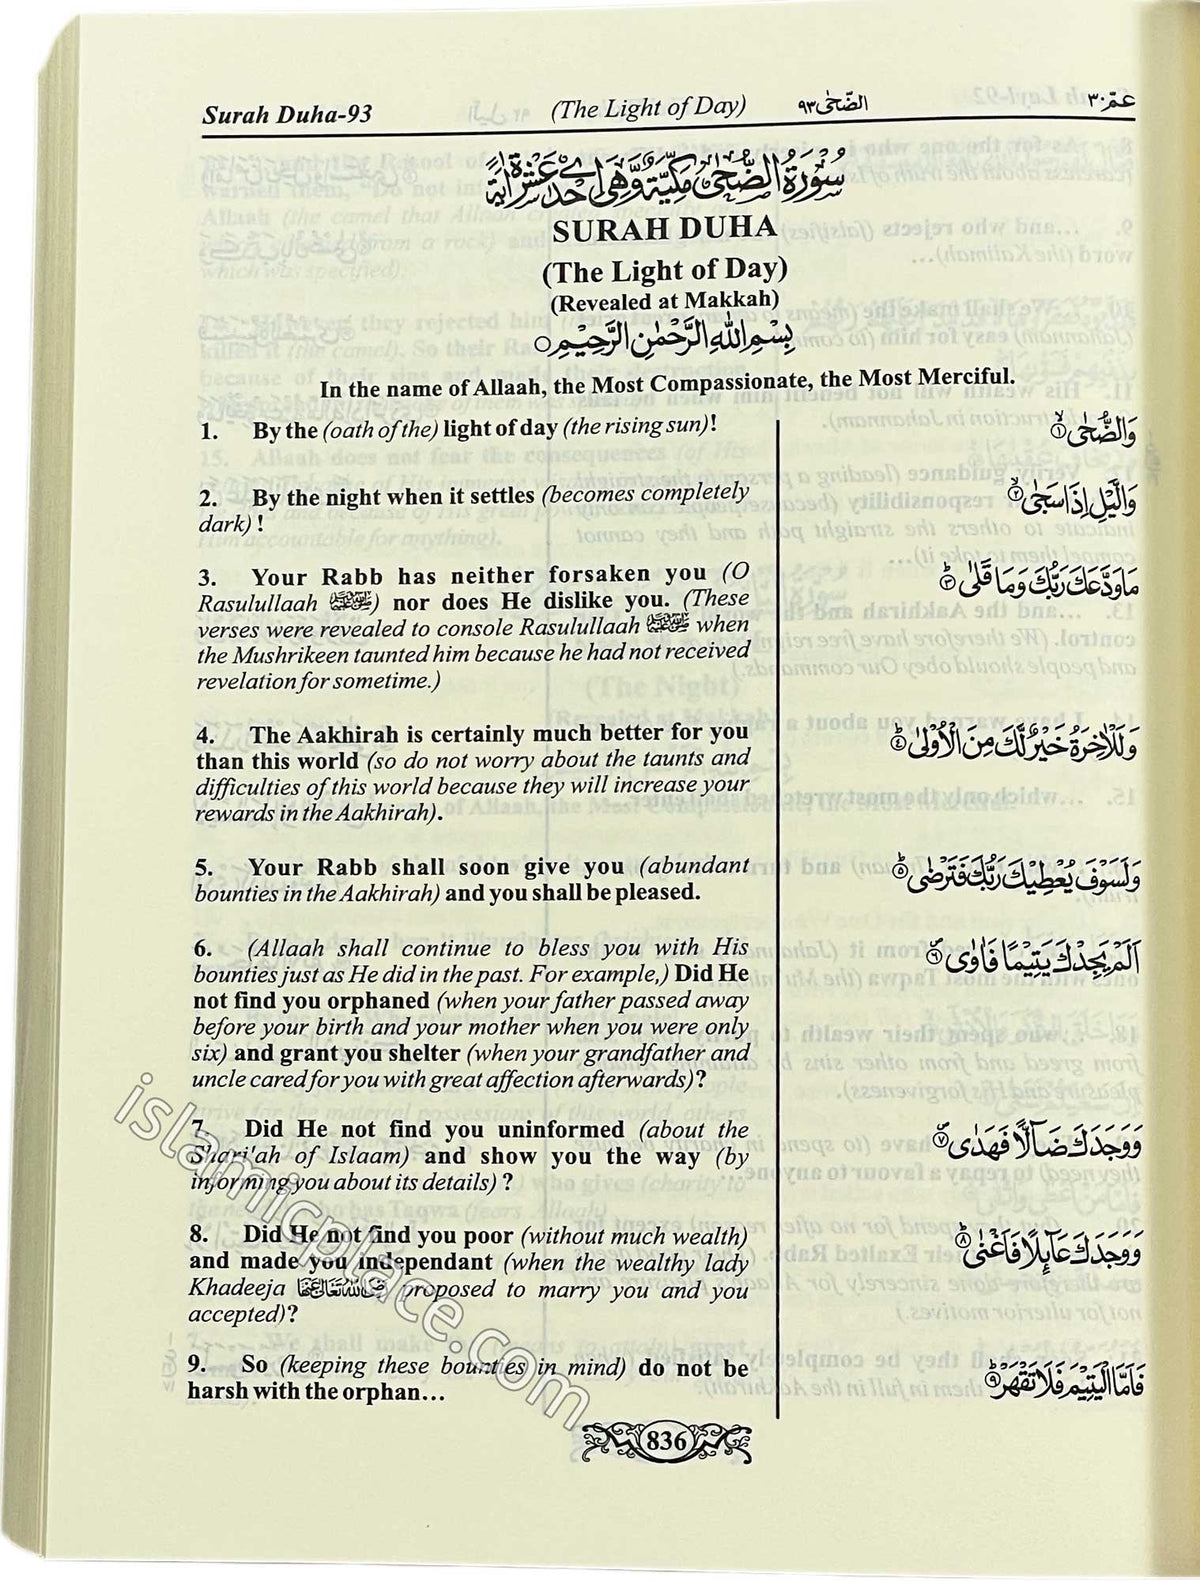 Surah Duha-93 (The Light of Day) الضّحٰی ٩٣ عمّ ٣٠
سُوْرَةُ الضُّحٰى مَكِّيَّةٌ وَّهِىَ اِحْدٰے عَشْرَةَ اٰيَةً
SURAH DUHA
(The Light of Day)
(Revealed at Makkah)
بِسْمِ اللّٰهِ الرَّحْمٰنِ الرَّحِيْمِ
In the name of Allaah, the Most Compassionate, the Most Merciful.
1. By the (oath of the) light of day (the rising sun)!
وَالضُّحٰى ١
2. By the night when it settles (becomes completely
dark) !
وَالَّيْلِ اِذَا سَجٰى ٢
3. Your Rabb has neither forsaken you (O
Rasulullaah ﷺ) nor does He dislike you. (These
verses were revealed to console Rasulullaah ﷺ when
the Mushrikeen taunted him because he had not received
revelation for sometime.)
مَا وَدَّعَكَ رَبُّكَ وَمَا قَلٰى ٣
4. The Aakhirah is certainly much better for you
than this world (so do not worry about the taunts and
difficulties of this world because they will increase your
rewards in the Aakhirah).
وَلَلْاٰخِرَةُ خَيْرٌ لَّكَ مِنَ الْاُوْلٰى ٤
5. Your Rabb shall soon give you (abundant
bounties in the Aakhirah) and you shall be pleased.
وَلَسَوْفَ يُعْطِيْكَ رَبُّكَ فَتَرْضٰى ٥
6. (Allaah shall continue to bless you with His
bounties just as He did in the past. For example,) Did He
not find you orphaned (when your father passed away
before your birth and your mother when you were only
six) and grant you shelter (when your grandfather and
uncle cared for you with great affection afterwards)?
اَلَمْ يَجِدْكَ يَتِيْمًا فَاٰوٰى ٦
7. Did He not find you uninformed (about the
Shari'ah of Islaam) and show you the way (by
informing you about its details) ?
وَوَجَدَكَ ضَآلًّا فَهَدٰى ٧
8. Did He not find you poor (without much wealth)
and made you independant (when the wealthy lady
Khadeeja رضى الله تعالى عنها proposed to marry you and you
accepted)?
وَوَجَدَكَ عَآئِلًا فَاَغْنٰى ٨
9. So (keeping these bounties in mind) do not be
harsh with the orphan…
فَاَمَّا الْيَتِيْمَ فَلَا تَقْهَرْ ٩
836
islamicplace.com